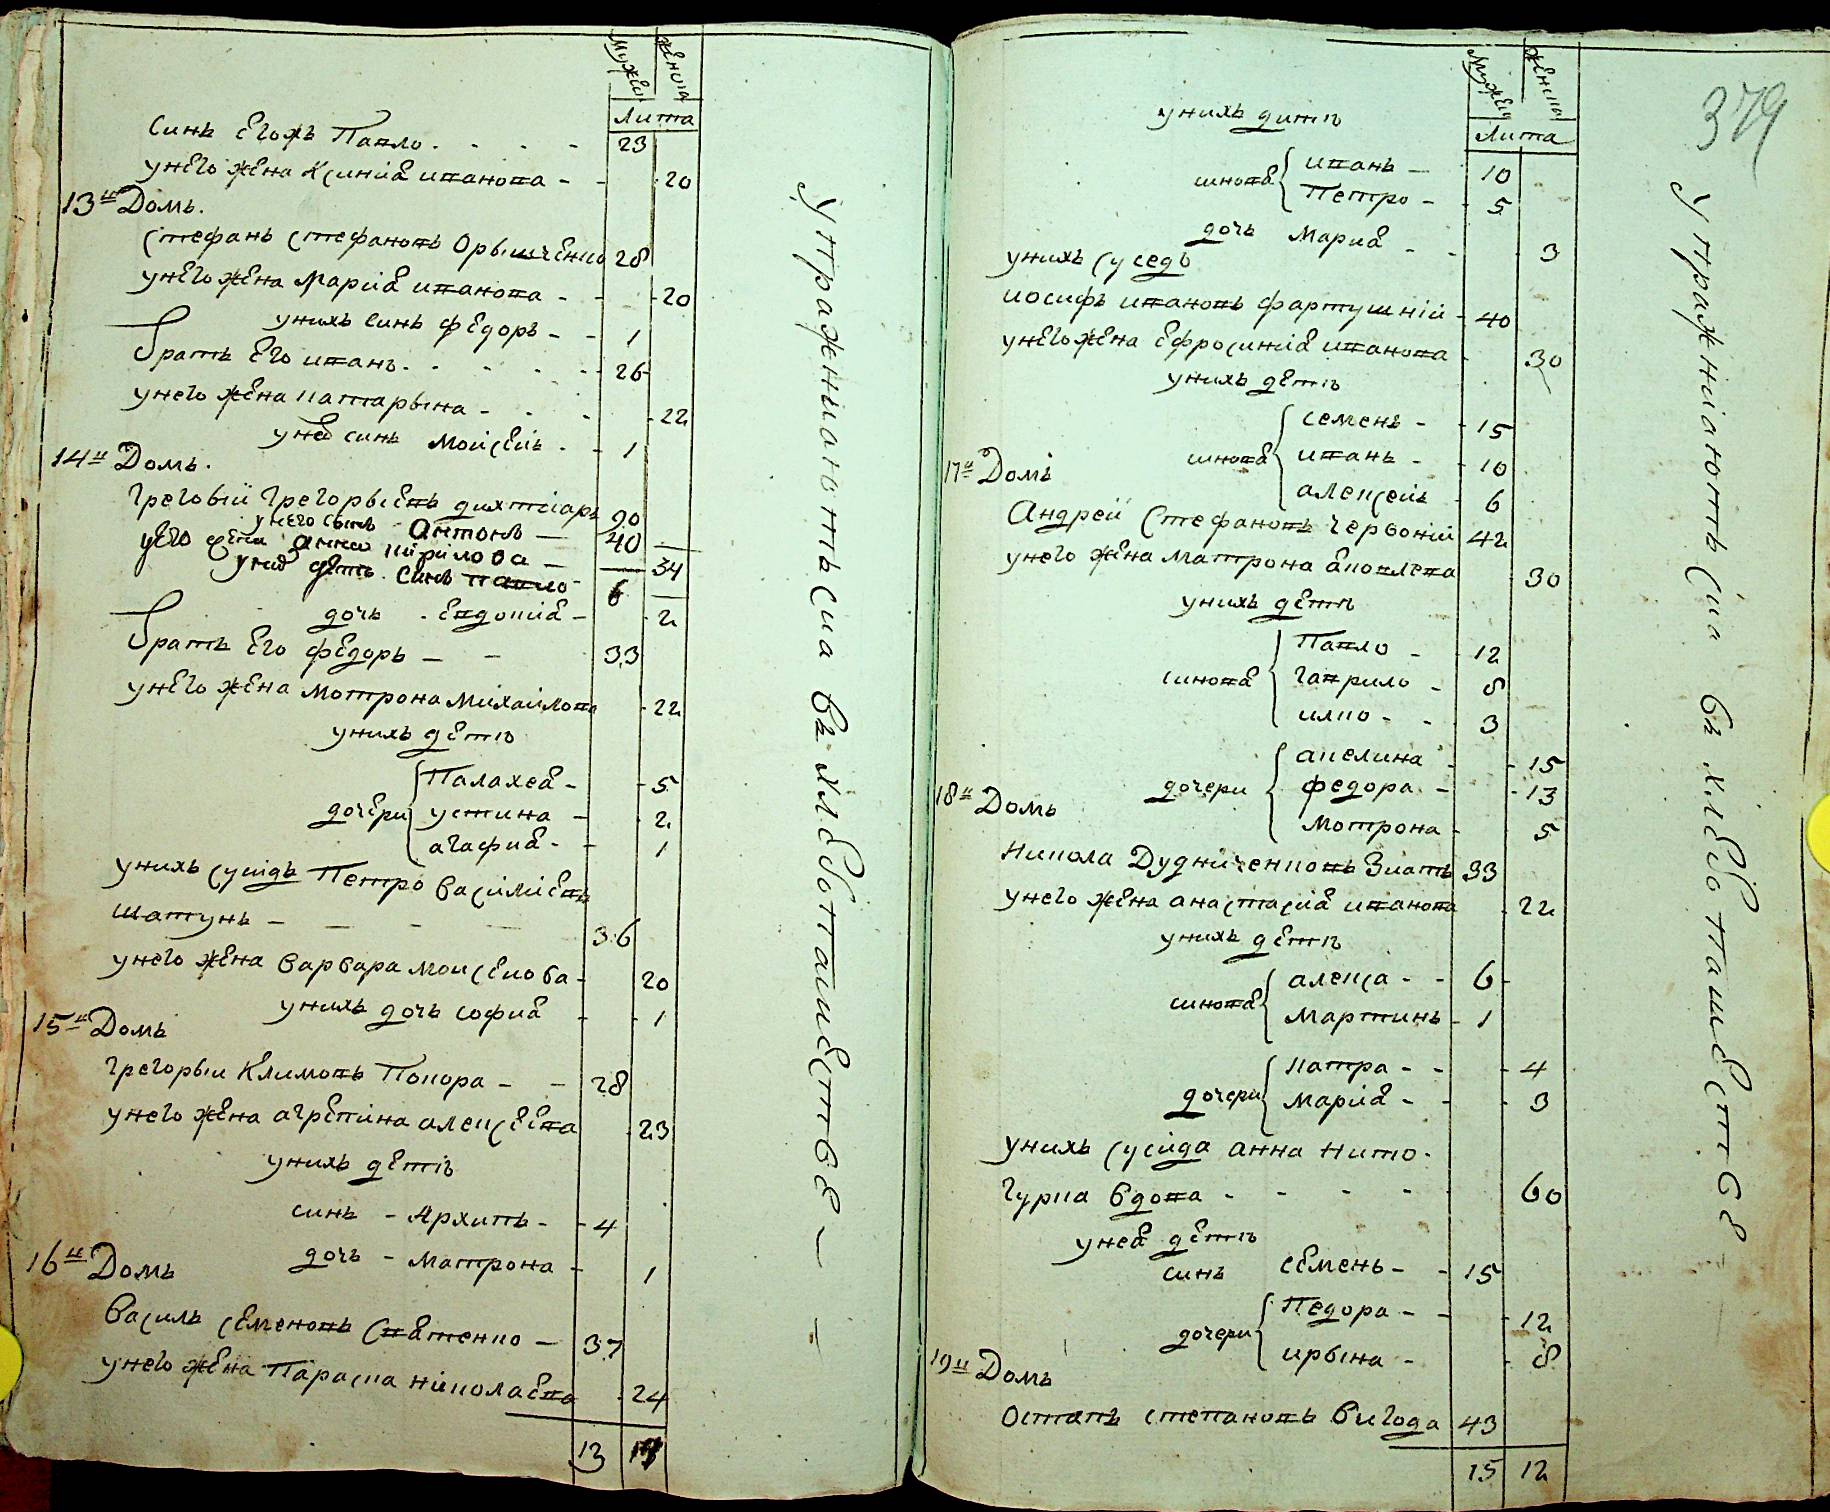 Мужеска
женска
Лита
Синъ Егожъ Павло - - 23
унего жена Ксиния иванова - - 20
13й Домъ.
Стефанъ Стефановъ Орышченко 28
унего жена Мария иванова - - 20
унихъ синъ федоръ - - 1
братъ Его иванъ - - 26
унего жена катарына - - 22
унея синъ Моисей - - 1
14й Домъ.
Грегорий Грегорыевъ дихтиаръ 90
унего сынъ Антонъ — 40
уего жена анна кирилова — 34
унихъ дети. синъ павло 6
дочь - Евдокия - 2
братъ Его федоръ — - 33
унего жена мотрона михайлова - 22
унихъ дети
дочери
Палахея - - 5
устина - - 2
агафия - - 1
унихъ сусидъ Петро василиевъ
шатунъ - - - 36
унего жена варвара моисеиова - 20
унихъ дочь софия - - 1
15й Домъ
грегорыи Климовъ Покора - - 28
унего жена агрепина алексеева 23
унихъ дети
синъ - Архипъ - - 4
дочь - матрона - 1
16й Домъ
василь семеновъ Святенко — 37
унего жена Параска николаева 24
13
упражниаютъсиа въ хлебопашестве — —
379
Мужеска
женска
Лита
унихъ дити
синовя
иванъ - 10
Петро - - 5
дочь Мария - - 3
унихъ суседъ
иосифъ ивановъ фартушний - 40
унего жена ефросиния иванова - 30
унихъ дети
синовя
семенъ - - 15
иванъ - - 10
алексей - 6
17й Домъ
Андрей Стефановъ Червоний 42
унего жена матрона яковлева 30
унихъ дети
синовя
Павло - - 12
гаврило - 8
илко - - 3
дочери
акелина - - 15
федора - - 13
мотрона - 5
18й Домъ
Никола Дудниченковъ Зиать 33
унего жена анастасия иванова - 22
унихъ дети
синовя
алекса - - 6
мартинъ - 1
дочери
катра - - - 4
мария - - - 3
унихъ сусида анна нито-
гурка вдова - - - - 60
унея дети
синъ семенъ - - 15
дочери
Педора - - - 12
ирына - - 8
19й Домъ
Остапъ степановъ вигода 43
15 12
упражниаютъсиа въ хлебопашестве —